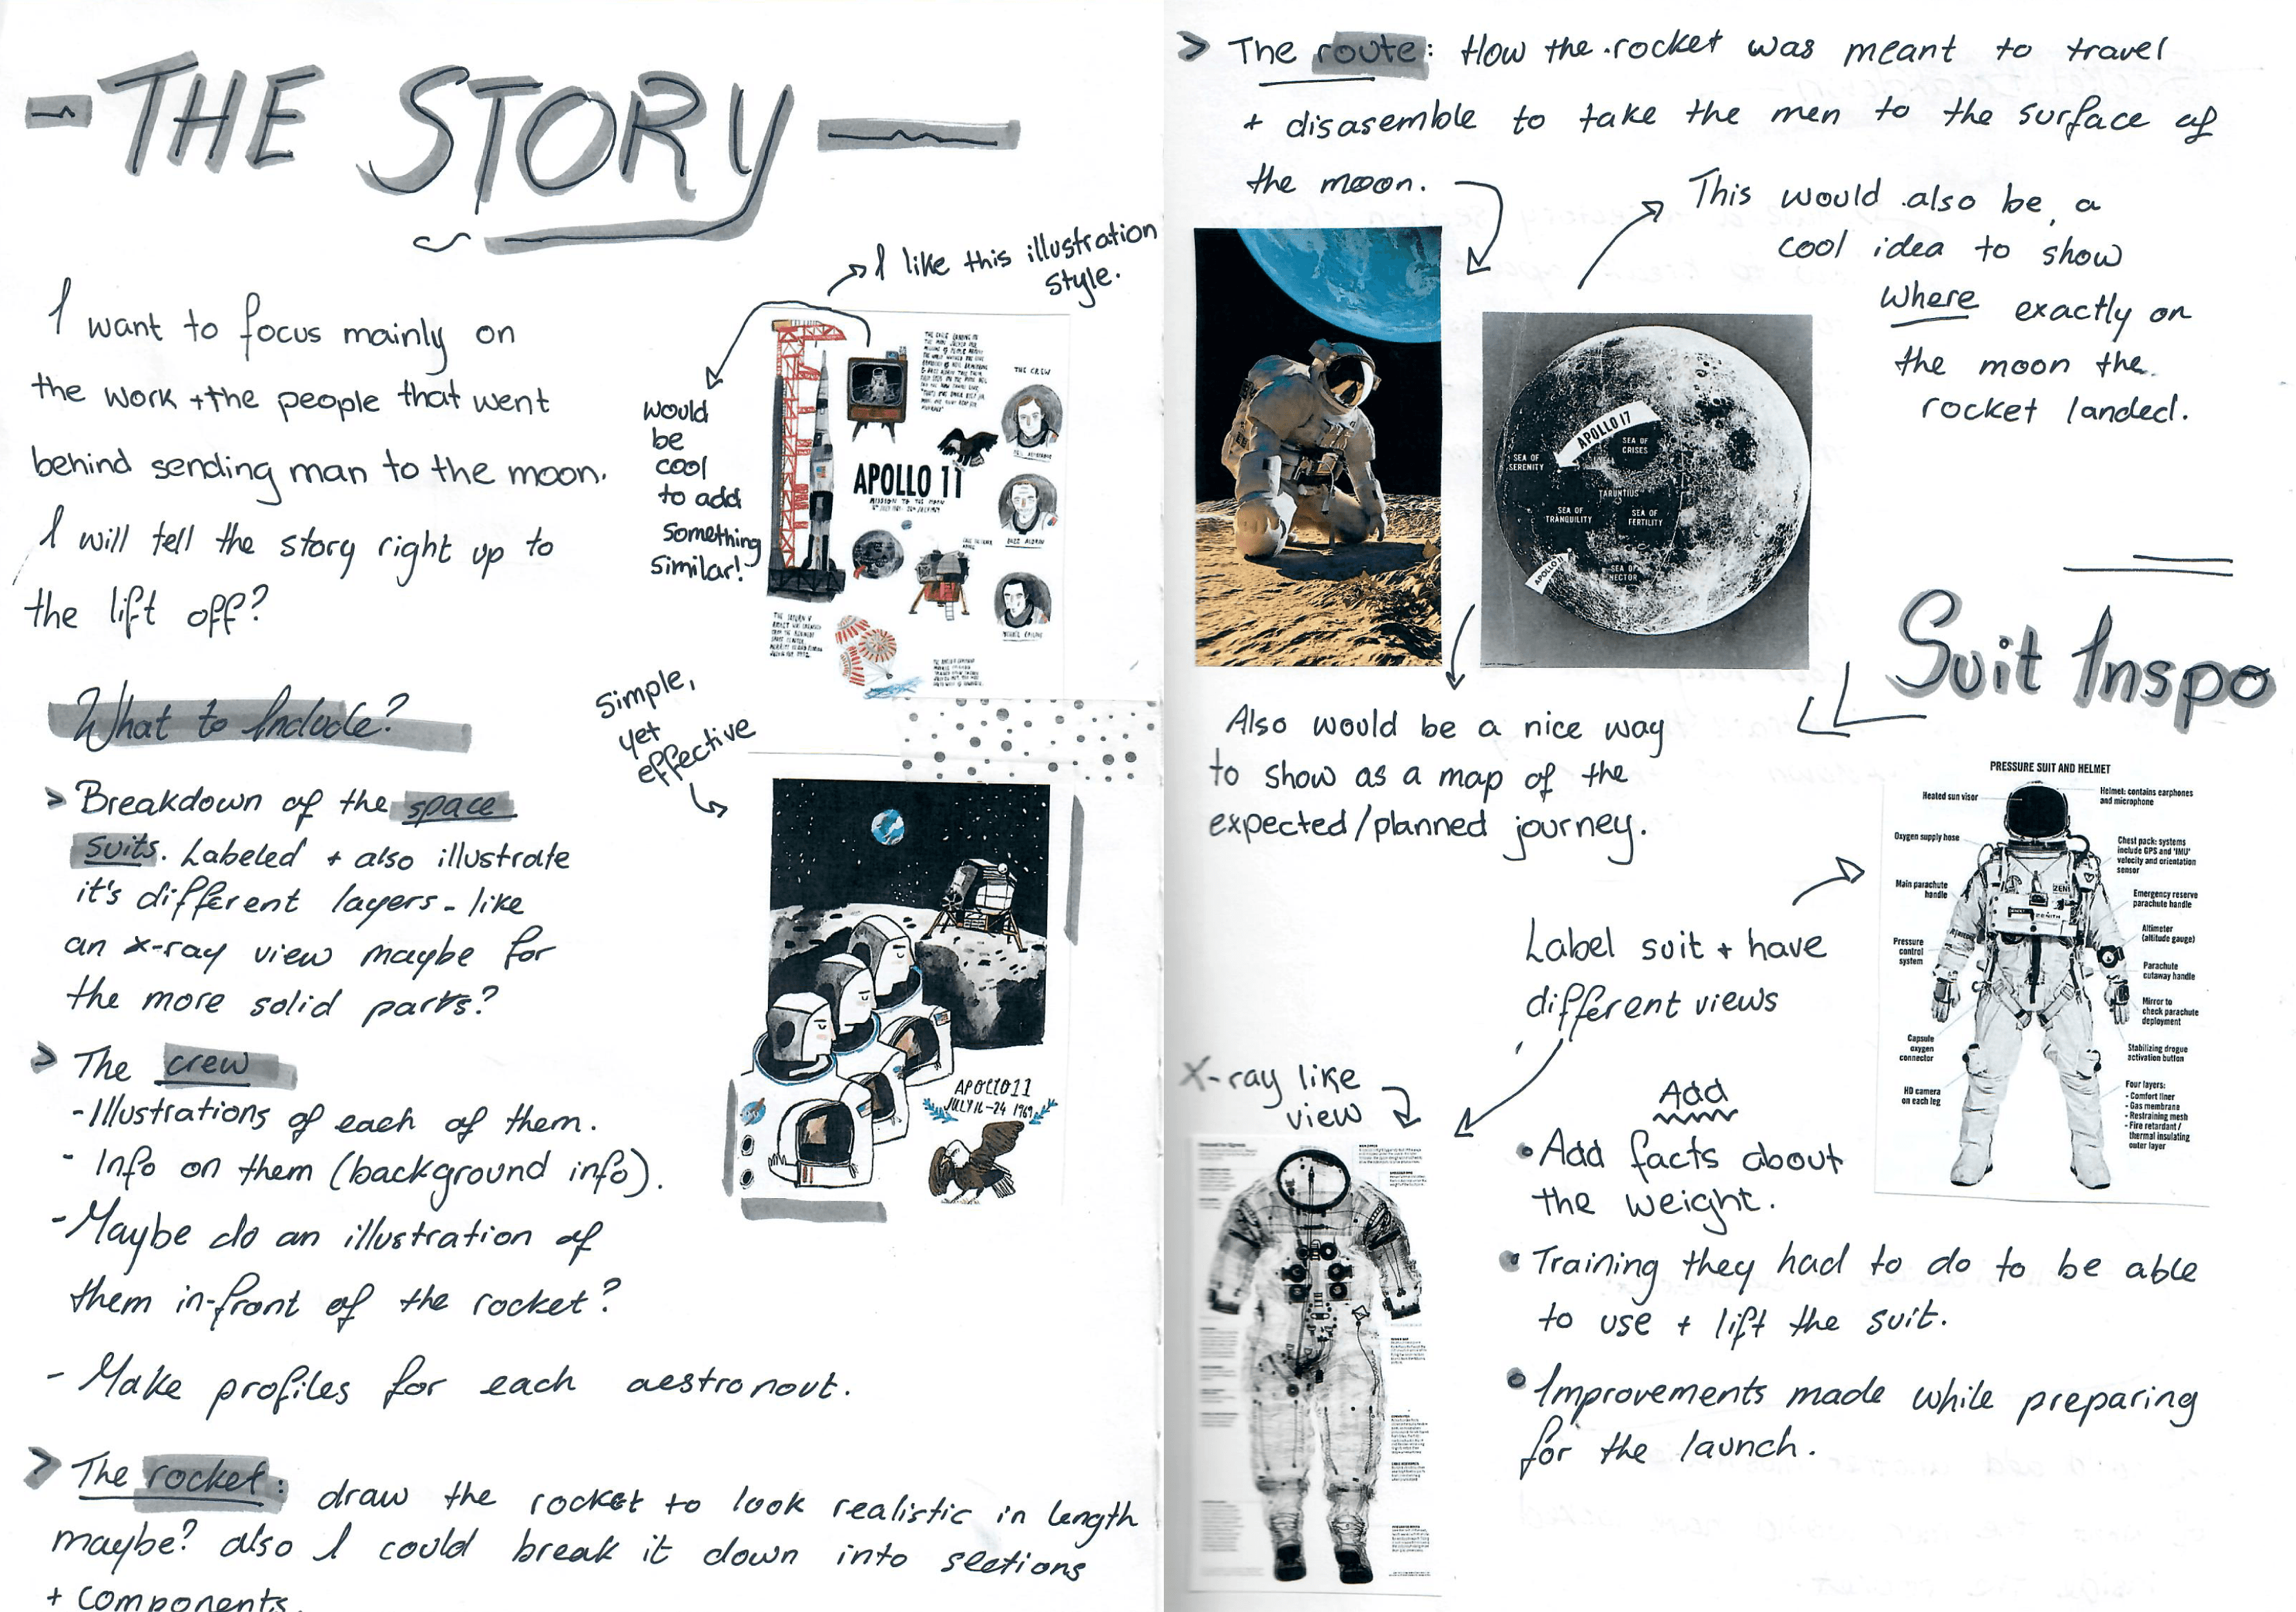 - THE STORY -
I want to focus mainly on
the work + the people that went
behind sending man to the moon.
I will tell the story right up to
the lift off?
I like this illustration
style.
would
be
cool
to add
something
similar!
THE CREW
APOLLO 11
MISSION TO THE MOON
BUZZ ALDRIN
simple,
yet
effective
APOLLO 11
JULY 16-24 1969
What to Include?
> Breakdown of the space
suits. Labeled + also illustrate
it's different layers - like
an x-ray view maybe for
the more solid parts?
> The crew
- Illustrations of each of them.
- Info on them (background info).
- Maybe do an illustration of
them in-front of the rocket?
- Make profiles for each aestronout.
> The rocket: draw the rocket to look realistic in length
maybe? also I could break it down into sections
+ components.
> The route: How the rocket was meant to travel
+ disasemble to take the men to the surface of
the moon.
This would also be a
cool idea to show
where exactly on
the moon the
rocket landed.
APOLLO 17
SEA OF
CRISES
SEA OF
SERENITY
TARUNTIUS
SEA OF
TRANQUILITY
SEA OF
FERTILITY
APOLLO 11
SEA OF
NECTOR
Also would be a nice way
to show as a map of the
expected/planned journey.
Suit Inspo
PRESSURE SUIT AND HELMET
Heated sun visor
Helmet: contains earphones
and microphone
Oxygen supply hose
Chest pack: systems
include GPS and 'IMU'
velocity and orientation
sensor
Main parachute
handle
Emergency reserve
parachute handle
ZENITH
Altimeter
(altitude gauge)
Pressure
control
system
Parachute
cutaway handle
Mirror to
check parachute
deployment
Capsule
oxygen
connector
Stabilizing drogue
activation button
HD camera
on each leg
Four layers:
- Comfort liner
- Gas membrane
- Restraining mesh
- Fire retardant /
thermal insulating
outer layer
Label suit + have
different views
X-ray like
view
Add
• Add facts about
the weight.
• Training they had to do to be able
to use + lift the suit.
• Improvements made while preparing
for the launch.